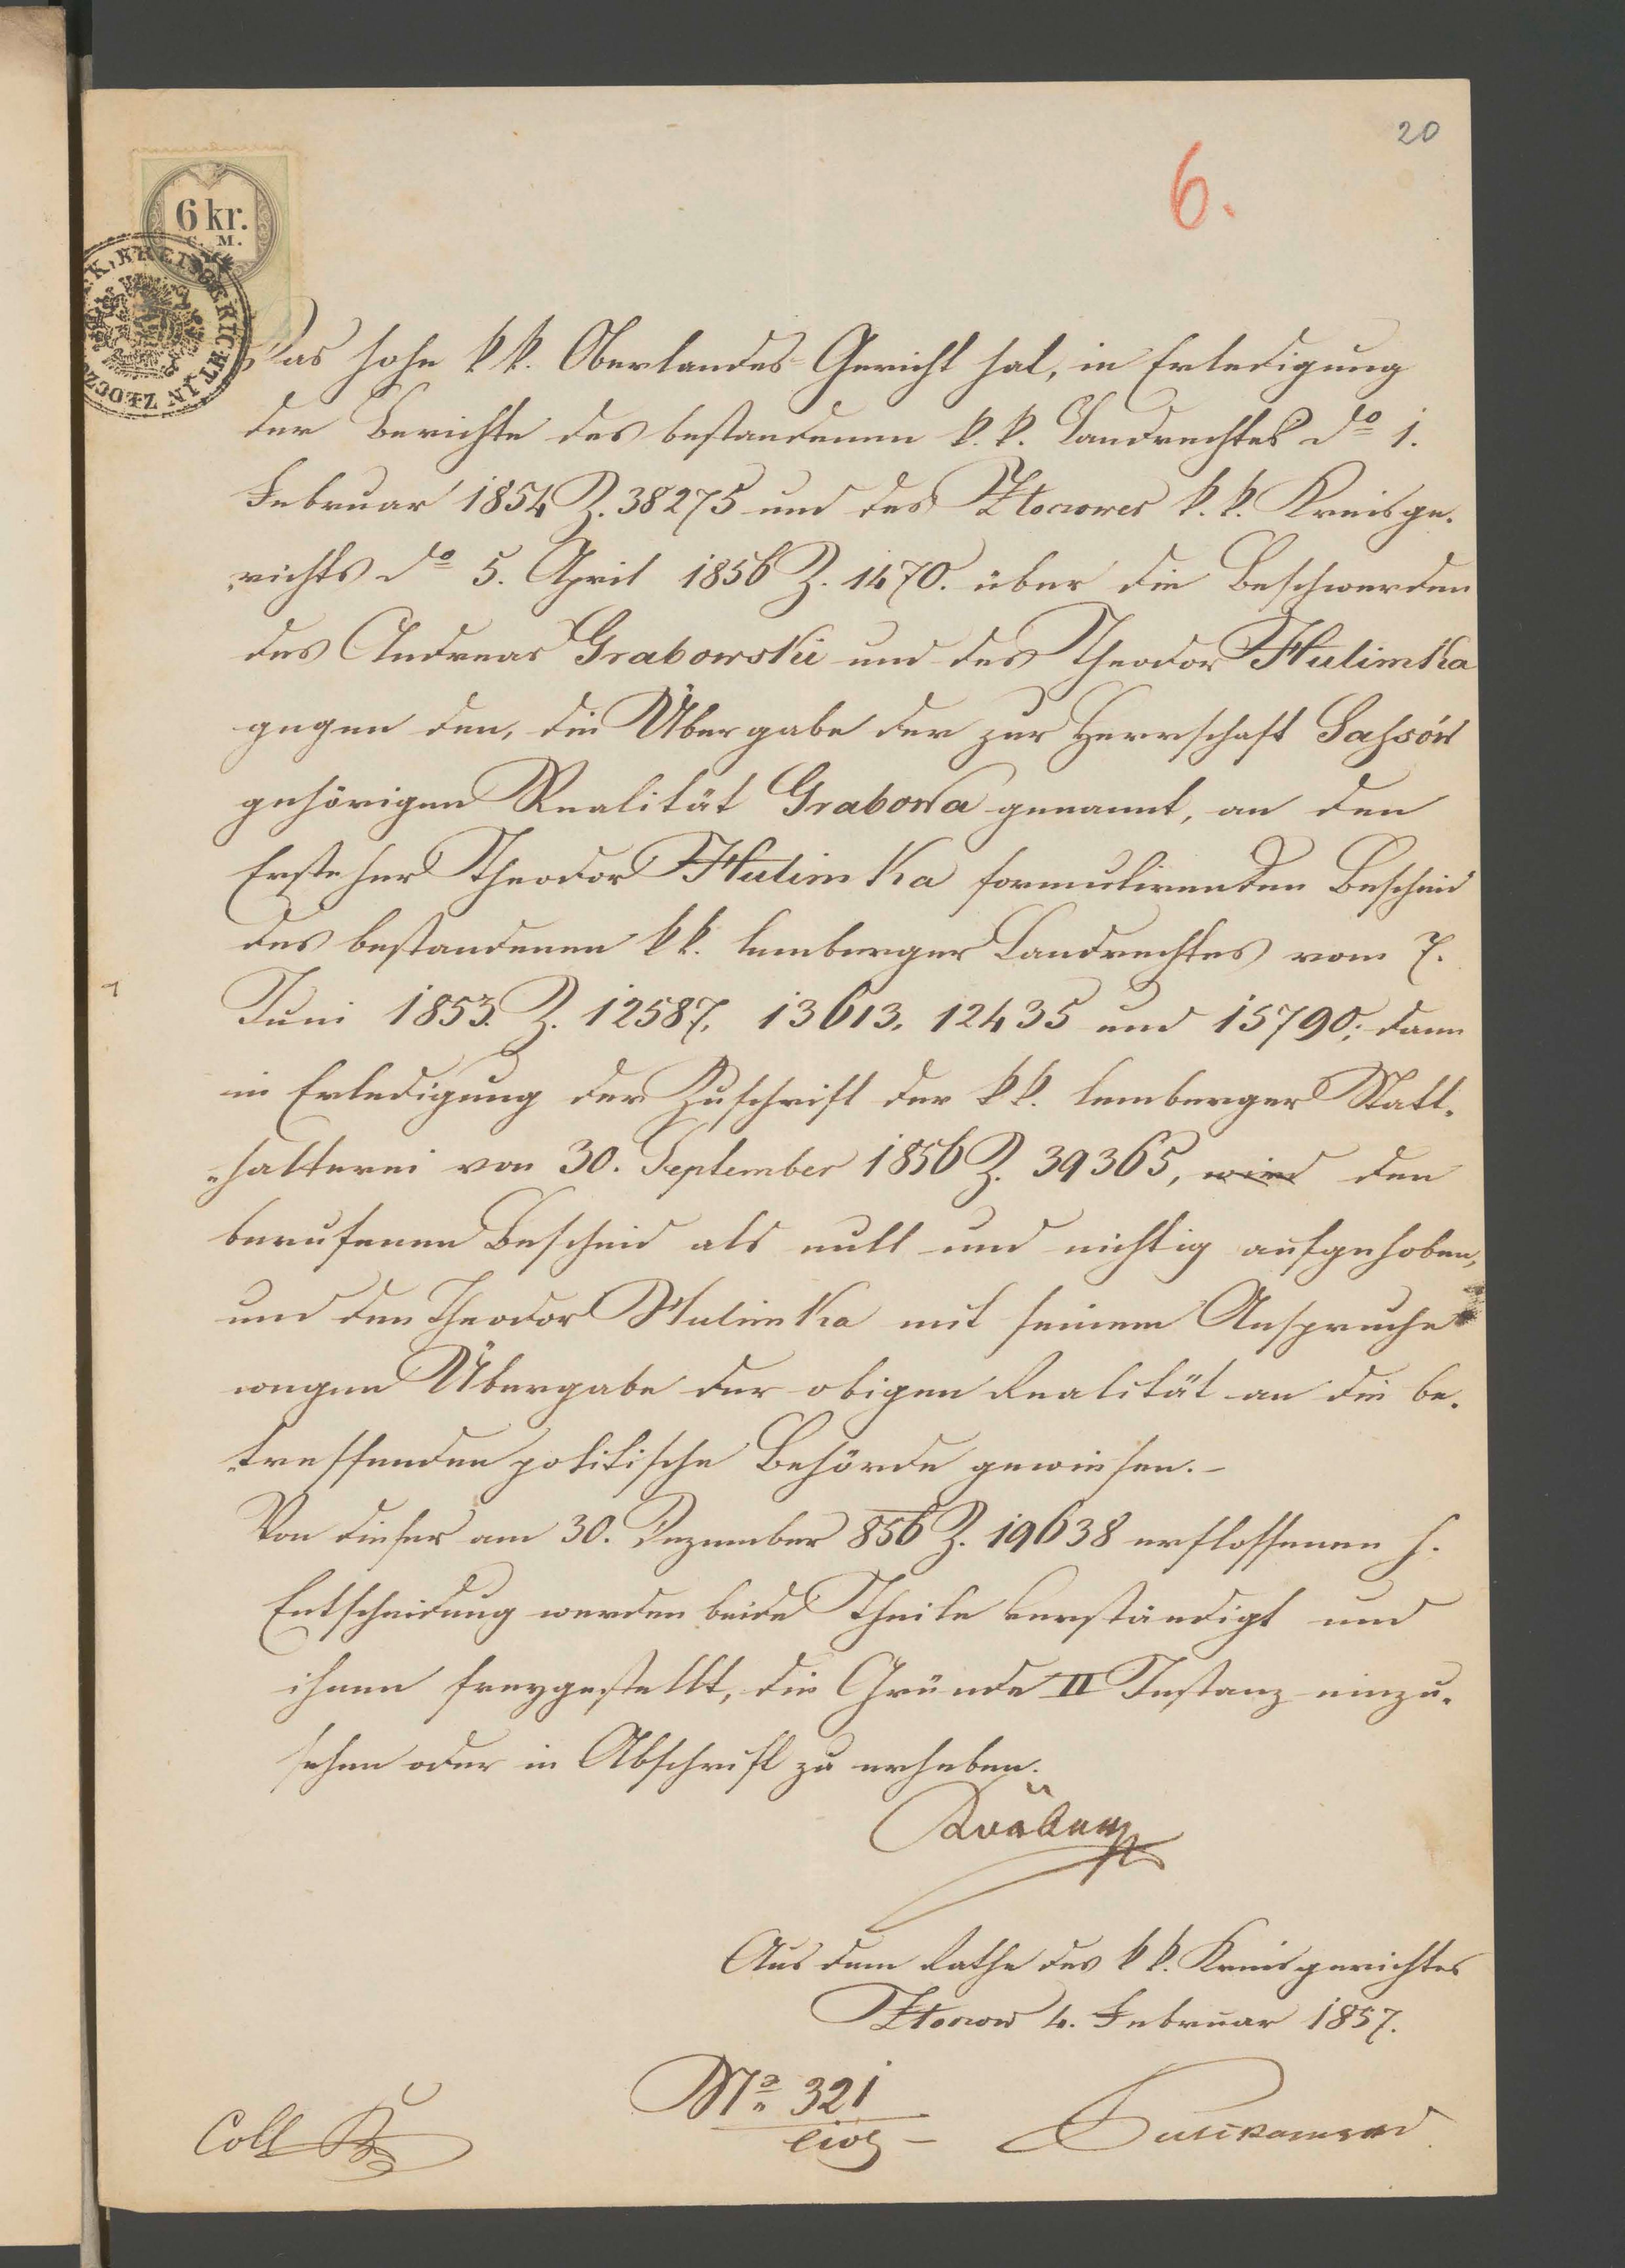 20
6.
6 kr.
C. M.
K. K. KREISGERICHT IN ZŁOCZ
Das hohe k k. Oberlandes-Gericht hat, in Erledigung
der Berichte des bestandenen k. k. Landrechtes do 1.
Februar 1854 Z. 38275 und des Złoczower k. k. Kreisge-
richts do 5. April 1856 Z. 1470. über die Beschwerden
des Andreas Grabowski und des Theodor Hulimka
gegen den, die Übergabe der zur Herrschaft Saßów
gehörigen Realität Grabowa genannt, an den
Ersteher Theodor Hulimka formulirenden Bescheid
des bestandenen k k. lemberger Landrechtes vom 7.
Juni 1853. Z. 12587, 13613, 12435 und 15790; dann
in Erledigung der Zuschrift der k k. lemberger Statt-
halterei von 30. September 1856 Z. 39365, wird den
berufenen Bescheid als null und nichtig aufgehoben,
und den Theodor Hulimka mit seinem Anspruche
wegen Übergabe der obigen Realität an die be-
treffenden politische Behörde gewiesen. –
Von dieser am 30. Dezember 856 Z. 19638 erflossenen h.
Entscheidung werden beide Theile verständigt und
ihnen freygestellt, die Gründe II Instanz einzu-
sehen oder in Abschrift zu erheben.
Aus dem Rathe des k k. Kreisgerichtes
Złoczow 4. Februar 1857.
No 321
civ –
Coll